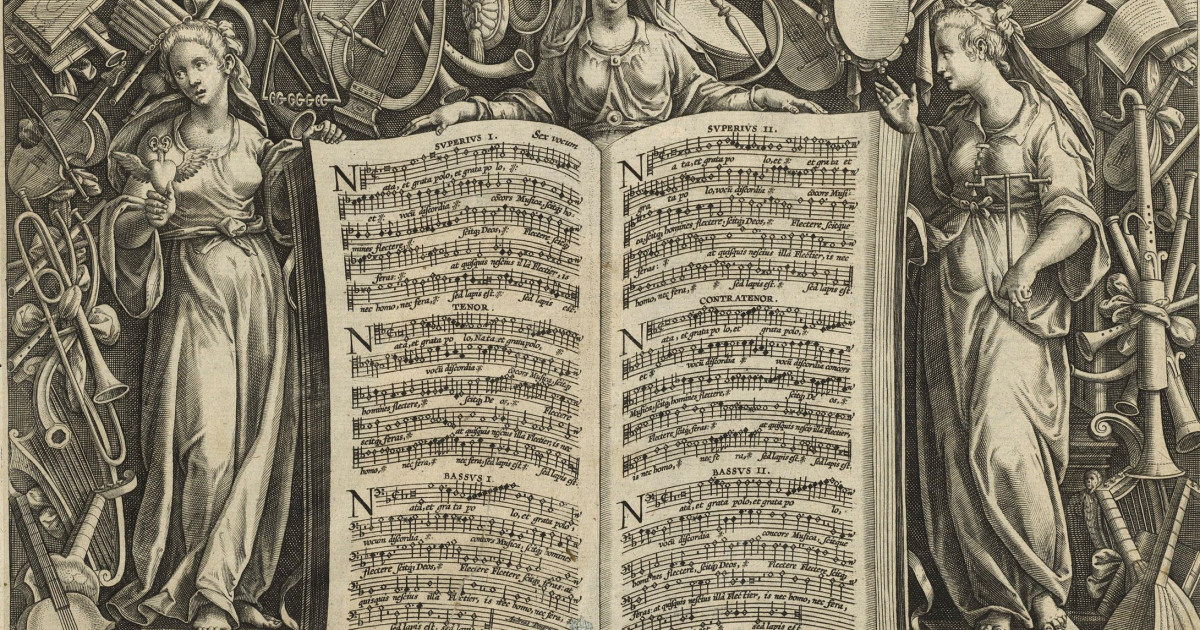 SVPERIVS I. Sex vocum
Nata, et grata polo, et grata po lo,
et vocū discordia cōcors Musica, scitq; ho-
mines flectere, scitq; Deos, Flectere, scitq;
feras: at quisquis nescius illa Flectier, is
nec homo, nec fera, sed lapis est. sed lapis est.
TENOR.
Nata, et grata po lo, Nata, et grata polo,
vocū discordia cōcors Musica, scitq;
homines flectere, scitq; De os, Flectere
scitq; feras, at quisquis nescius illa Flectier, is nec
homo, nec fera, nec fera, sed lapis est. sed lapis est.
BASSVS I.
Nata, et gra ta po lo, et grata polo
vocum discordia concors Musica, scitq; homines
flectere, scitq; Deos, Flectere Flectere, scitq; feras: at
quisquis nescius illa Flectier, is nec homo, nec fera,
sed lapis est, sed lapis
SVPERIVS II.
Na ta, et grata po lo, et et grata et
gra ta po lo, vocū discordia cōcors Musi-
ca, scitq; homines flectere, scitq; Deos, Flectere, scitque
feras: at quisquis nescius illa Flectier, is nec
homo, nec fera, sed lapis est. sed lapis est.
CONTRATENOR.
Nata, et grata po lo, et grata polo,
et vocū discordia vocū discordia concors
Musica, scitq; homines flectere, scitq; De os,
Flectere, scitq; feras: at quisquis nescius illa Flectier,
is nec homo, nec fe ra, sed lapis est. sed lapis est.
BASSVS II.
Nata, et grata polo, et grata po lo,
vocū discordia concors Musica, scitque
homines flectere, scitq; Deos, Flectere Flectere, scitq;
feras, at quisquis nescius illa Flectier, is nec homo, nec fera,
sed lapis est. sed lapis est.